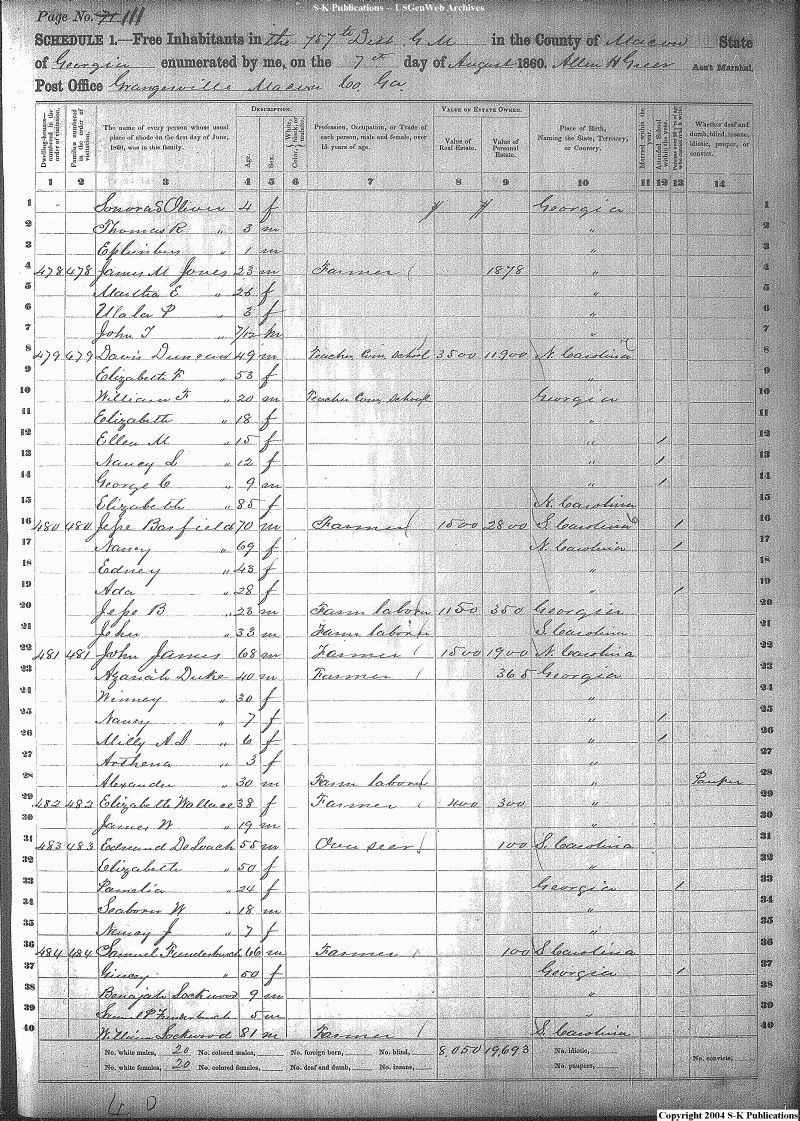 S-K Publications – USGenWeb Archives
Page No. 71 111
SCHEDULE 1.—Free Inhabitants in the 757th Dist G M in the County of Macon State
of Georgia enumerated by me, on the 7th day of August 1860. Allen H Greer Ass't Marshal.
Post Office Grangerville Macon Co, Ga
Dwelling-houses—numbered in the order of visitation.
Families numbered in the order of visitation.
The name of every person whose usual place of abode on the first day of June, 1860, was in this family.
DESCRIPTION.
Age.
Sex.
Color,
Profession, Occupation, or Trade of each person, male and female, over 15 years of age.
VALUE OF ESTATE OWNED.
Value of Real Estate.
Value of Personal Estate.
Place of Birth, Naming the State, Territory, or Country.
Married within the year.
Attended School within the year.
Whether deaf and dumb, blind, insane, idiotic, pauper, or convict.
1 2 3 4 5 6 7 8 9 10 11 12 13 14
1 Oliver 4 f Georgia 1
2 Thomas R " 3 m " 2
3 " 1 m " 3
4 478 478 James M Jones 23 m Farmer 1878 " 4
5 Martha E " 26 f " 5
6 P " 3 f " 6
7 John T " 7/12 m " 7
8 479 479 Davis Duncan 49 m Teacher Com, School 3500 11900 N. Carolina 8
9 Elizabeth F " 53 f " 9
10 William F " 20 m Teacher Com, School Georgia 10
11 Elizabeth " 18 f " 11
12 Ellen M " 15 f " / 12
13 Nancy L " 12 f " / 13
14 George C " 9 m " / 14
15 Elizabeth " 85 f N. Carolina 15
16 480 480 Jesse Barfield 70 m Farmer 1500 2800 S. Carolina / 16
17 Nancy " 69 f N. Carolina / 17
18 Edney " 43 f " 18
19 Ada " 28 f " / 19
20 Jesse B " 23 m Farm labor 1150 350 Georgia 20
21 John " 33 m Farm labor S. Carolina 21
22 481 481 John James 68 m Farmer 1500 1900 N. Carolina 22
23 Azariah Duke 40 m Farmer 365 Georgia 23
24 Winney " 30 f " 24
25 Nancy " 7 f " / 25
26 Milly A D " 6 f " / 26
27 Arthena " 3 f " 27
28 Alexander " 30 m Farm labor " Pauper 28
29 482 482 Elizabeth Wallace 38 f Farmer 400 300 " 29
30 James W " 19 m " 30
31 483 483 Edmund DeLoach 55 m Over seer 100 S. Carolina 31
32 Elizabeth " 50 f " 32
33 Pamelia " 24 f Georgia / 33
34 Seaborn W " 18 m " 34
35 Nancy J " 7 f " 35
36 484 484 Samuel Funderburch 66 m Farmer 100 S Carolina 36
37 Gincy " 50 f Georgia / 37
38 Benajah Lockwood 9 m " 38
39 Funderburch 5 m " 39
40 William Lockwood 81 m Farmer S. Carolina 40
No. white males, 20 No. colored males, No. foreign born, No. blind, 8,050 19,693 No. idiotic,
No. white females, 20 No. colored females, No. deaf and dumb, No. insane, No. paupers, No. convicts,
40
Copyright 2004 S-K Publications